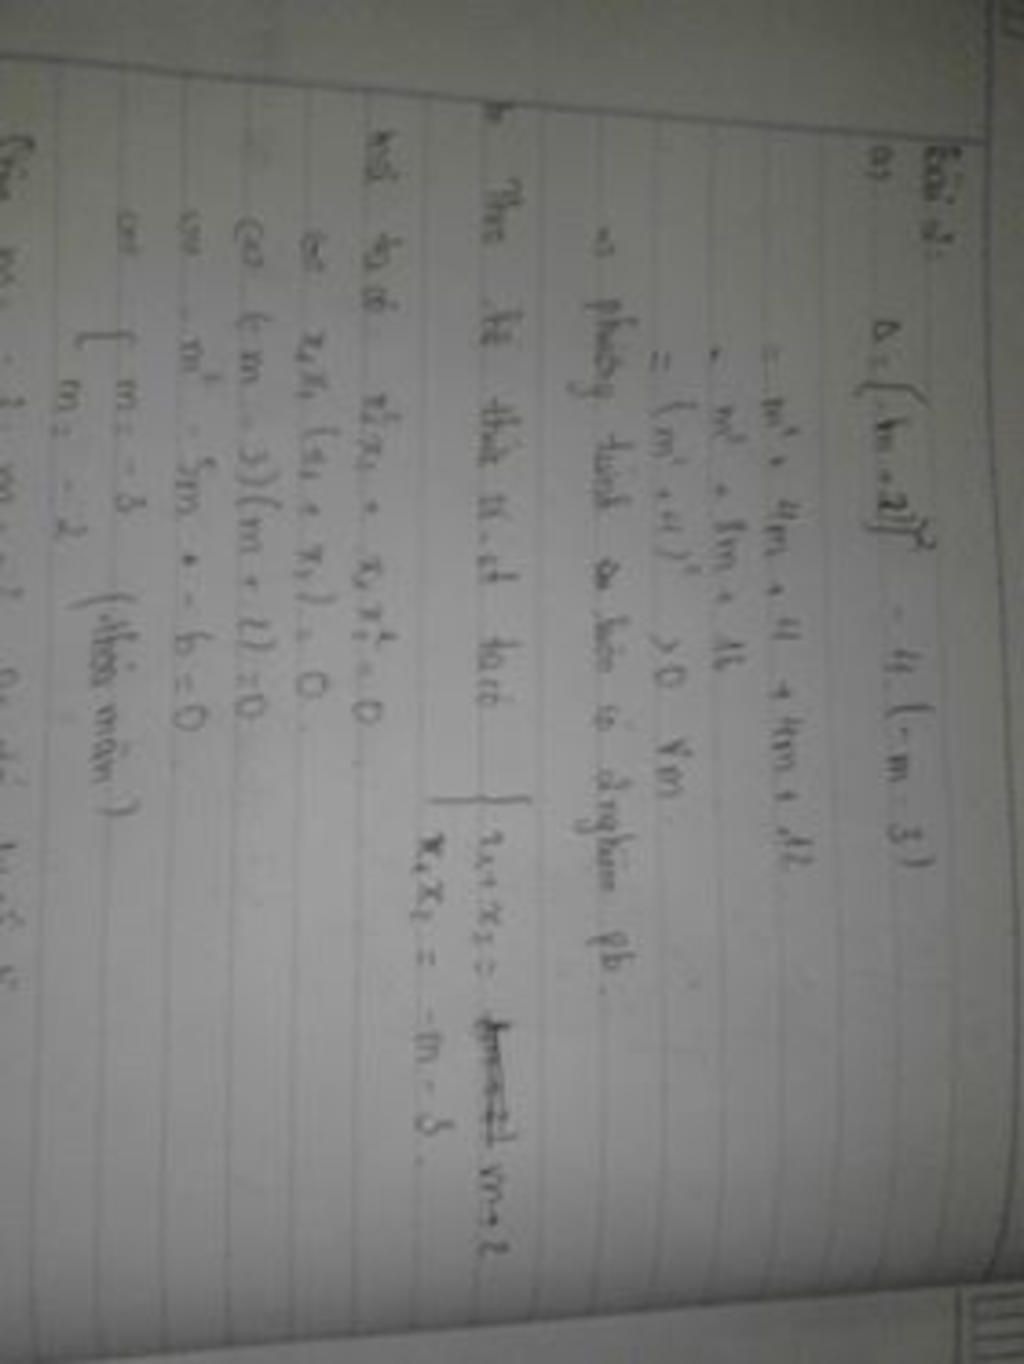 Bài 2:
a) Δ = [-(m+2)]² - 4.(-m-3)
= m² + 4m + 4 + 4m + 12
= m² + 8m + 16
= (m + 4)² > 0 ∀m
=> phương trình luôn có 2 nghiệm pb.
b, Theo hệ thức Vi-ét ta có { x₁ + x₂ = m+2
x₁x₂ = -m - 3.
mà ta có x₁²x₂ + x₁x₂² = 0
<=> x₁x₂ (x₁ + x₂) = 0
<=> (-m - 3)(m + 2) = 0
<=> -m² - 5m + - 6 = 0
<=> { m = -3 (thỏa mãn)
m = -2